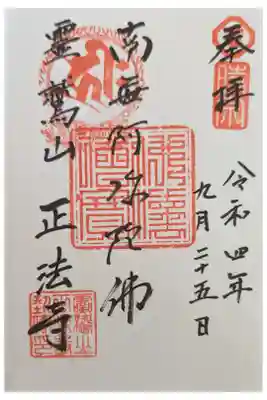 奉拝
令和四年
九月二十五日
南無阿弥陀佛
靈鷲山 正法寺